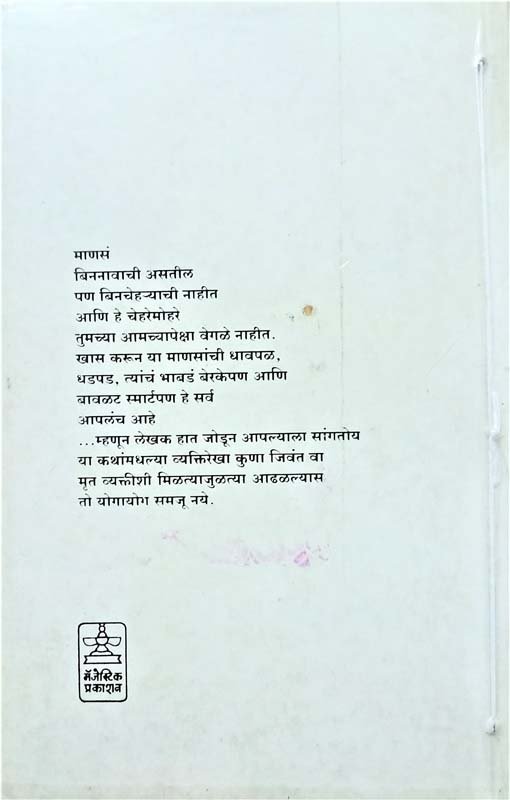 माणसं
बिननावाची असतील
पण बिनचेहऱ्याची नाहीत
आणि हे चेहरेमोहरे
तुमच्या आमच्यापेक्षा वेगळे नाहीत.
खास करून या माणसांची धावपळ,
धडपड, त्यांचं भाबडं बेरकेपण आणि
बावळट स्मार्टपण हे सर्व
आपलंच आहे
...म्हणून लेखक हात जोडून आपल्याला सांगतोय
या कथांमधल्या व्यक्तिरेखा कुणा जिवंत वा
मृत व्यक्तीशी मिळत्याजुळत्या आढळल्यास
तो योगायोग समजू नये.
मॅजेस्टिक
प्रकाशन